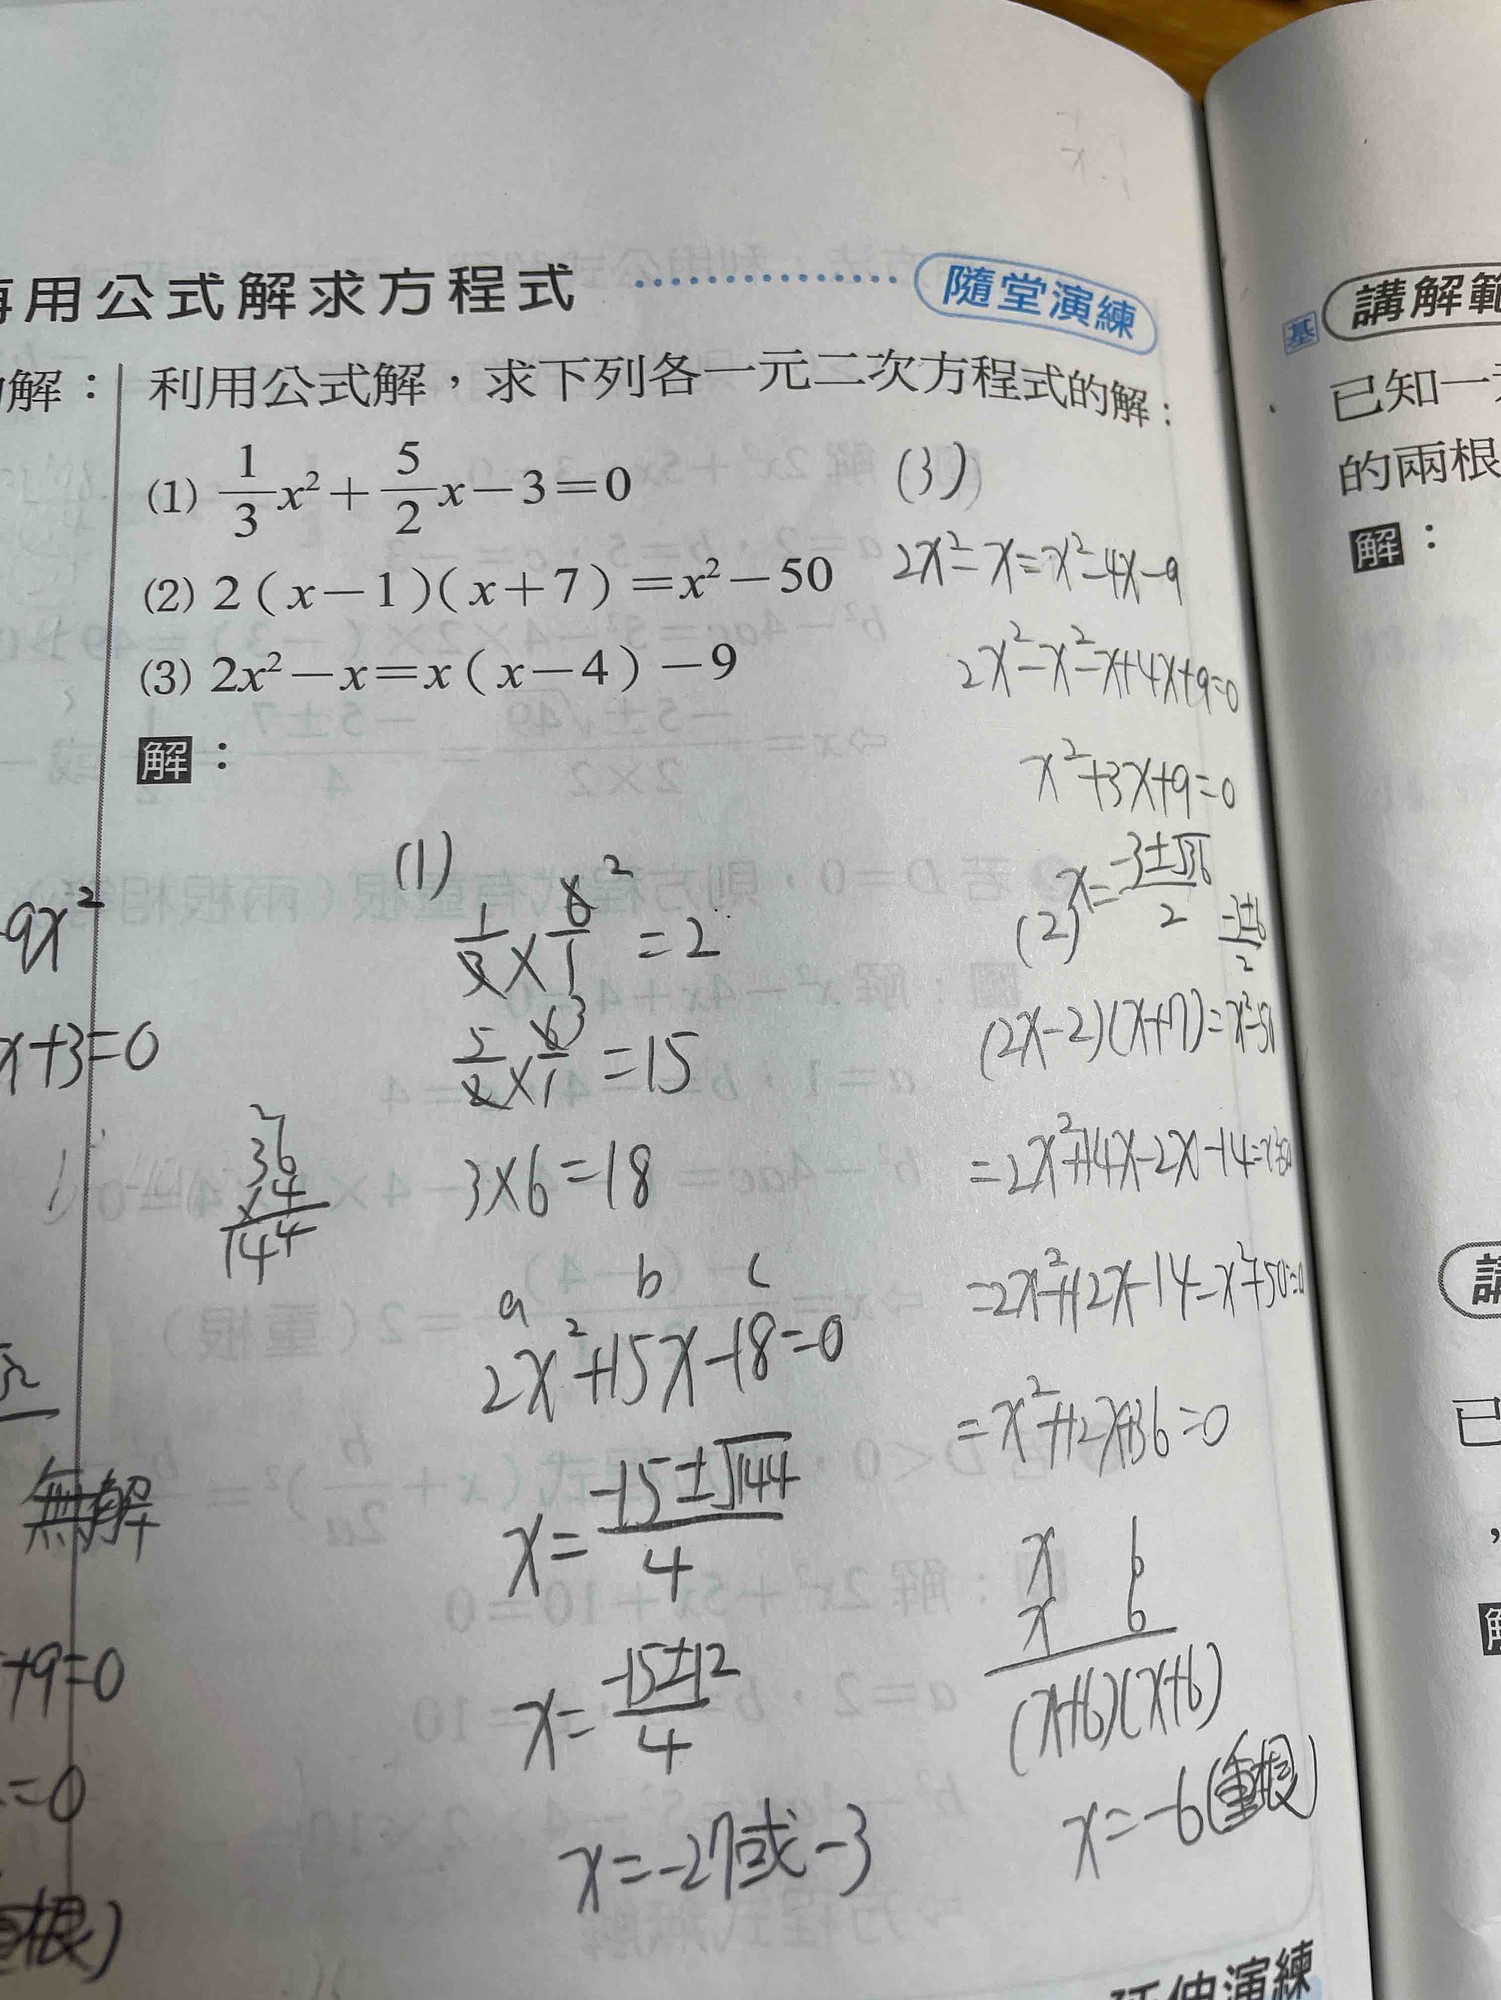 用公式解求方程式
隨堂演練
解：
利用公式解，求下列各一元二次方程式的解：
(1) 1/3 x²+5/2 x−3=0
(2) 2(x−1)(x+7)=x²−50
(3) 2x²−x=x(x−4)−9
解：
(1)
1/3×6/1 2 =2
5/2×6/1 3 =15
3×6=18
a b c
2x²+15x−18=0
x=(−15±√144)/4
x=(−15±12)/4
x=−27或−3
2
36
×4
144
(3)
2x²−x=x²−4x−9
2x²−x²−x+4x+9=0
x²+3x+9=0
x=(−3±√36)/2
(−3±6)/2
(2)
(2x−2)(x+7)=x²−50
=2x²+14x−2x−14=x²−50
=2x²+12x−14−x²+50=0
=x²+12x+36=0
x 6
x 6
(x+6)(x+6)
x=−6(重根)
9x²
x+3=0
無解
+9=0
=0
根)
演練
基
講解範
已知一
的兩根
解：
講
已
，